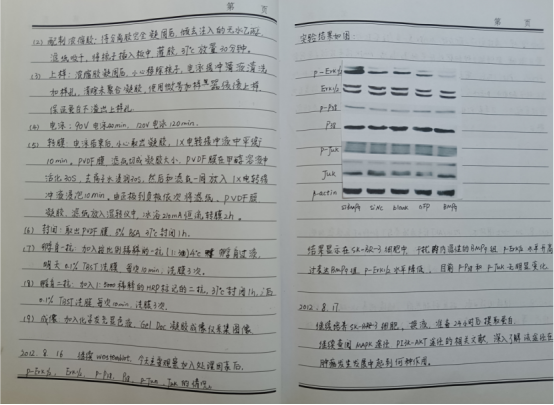 第 页
(2) 配制浓缩胶: 待分离胶完全凝固后, 倾去注入的无水乙醇
滤纸吸干, 将梳子插入板中, 灌胶, 37℃放置40分钟。
(3) 上样: 浓缩胶凝固后, 小心移除梳子, 电泳缓冲液清洗
加样孔, 清除未聚合凝胶, 使用微量加样器 上样
保证蛋白不溢出上样孔
(4) 电泳: 90V 电泳 min, 120V 电泳 120min.
(5) 转膜: 电泳结束后, 小心取出凝胶, 1X电转缓冲液中平衡
10min. PVDF膜 滤纸切成凝胶大小, PVDF膜在甲醇溶液中
活化30s, 去离子水浸润30s, 然后和滤纸一同放入1X电转缓
冲液浸泡10min. 由正极到负极依次将滤纸, PVDF膜
凝胶, 滤纸放入湿转仪中, 冰浴210mA恒流转膜2h.
(6) 封闭: 取出PVDF膜 5% BSA 37℃封闭1h.
(7) 孵育一抗: 加入按比例稀释的一抗 4℃ 孵育过夜,
明天 0.1% TBST洗膜, 每次10min, 洗膜3次.
(8) 孵育二抗: 加入1:5000稀释的HRP标记的二抗, 37℃封闭1h, 后
0.1% TBST洗膜, 每次10min, 洗膜3次.
(9) 成像: 加入化学发光显色液, Gel Doc 凝胶成像仪采集图像
2012. 8. 16 继续 western blot
p-Erk1/2, Erk1/2, p-P38, P38, p-Junk, Junk的情况.
第 页
实验结果如图:
p-Erk1/2
Erk1/2
p-P38
P38
p-Junk
Junk
β-actin
siBmp9 siNC blank GFP Bmp9
结果显示在SK-BR-3细胞中, 干扰内源性的Bmp9组 p-Erk1/2水平升高
过表达Bmp9组 p-Erk1/2水平降低, 而 p-P38和p-Junk无明显变化
2012. 8. 17
继续培养SK-BR-3细胞, 换液, 准备24h后提取蛋白.
继续查阅MAPK通路 PI3K-AKT通路的相关文献, 深入了解该通路在
肿瘤发生发展中起到何种作用.